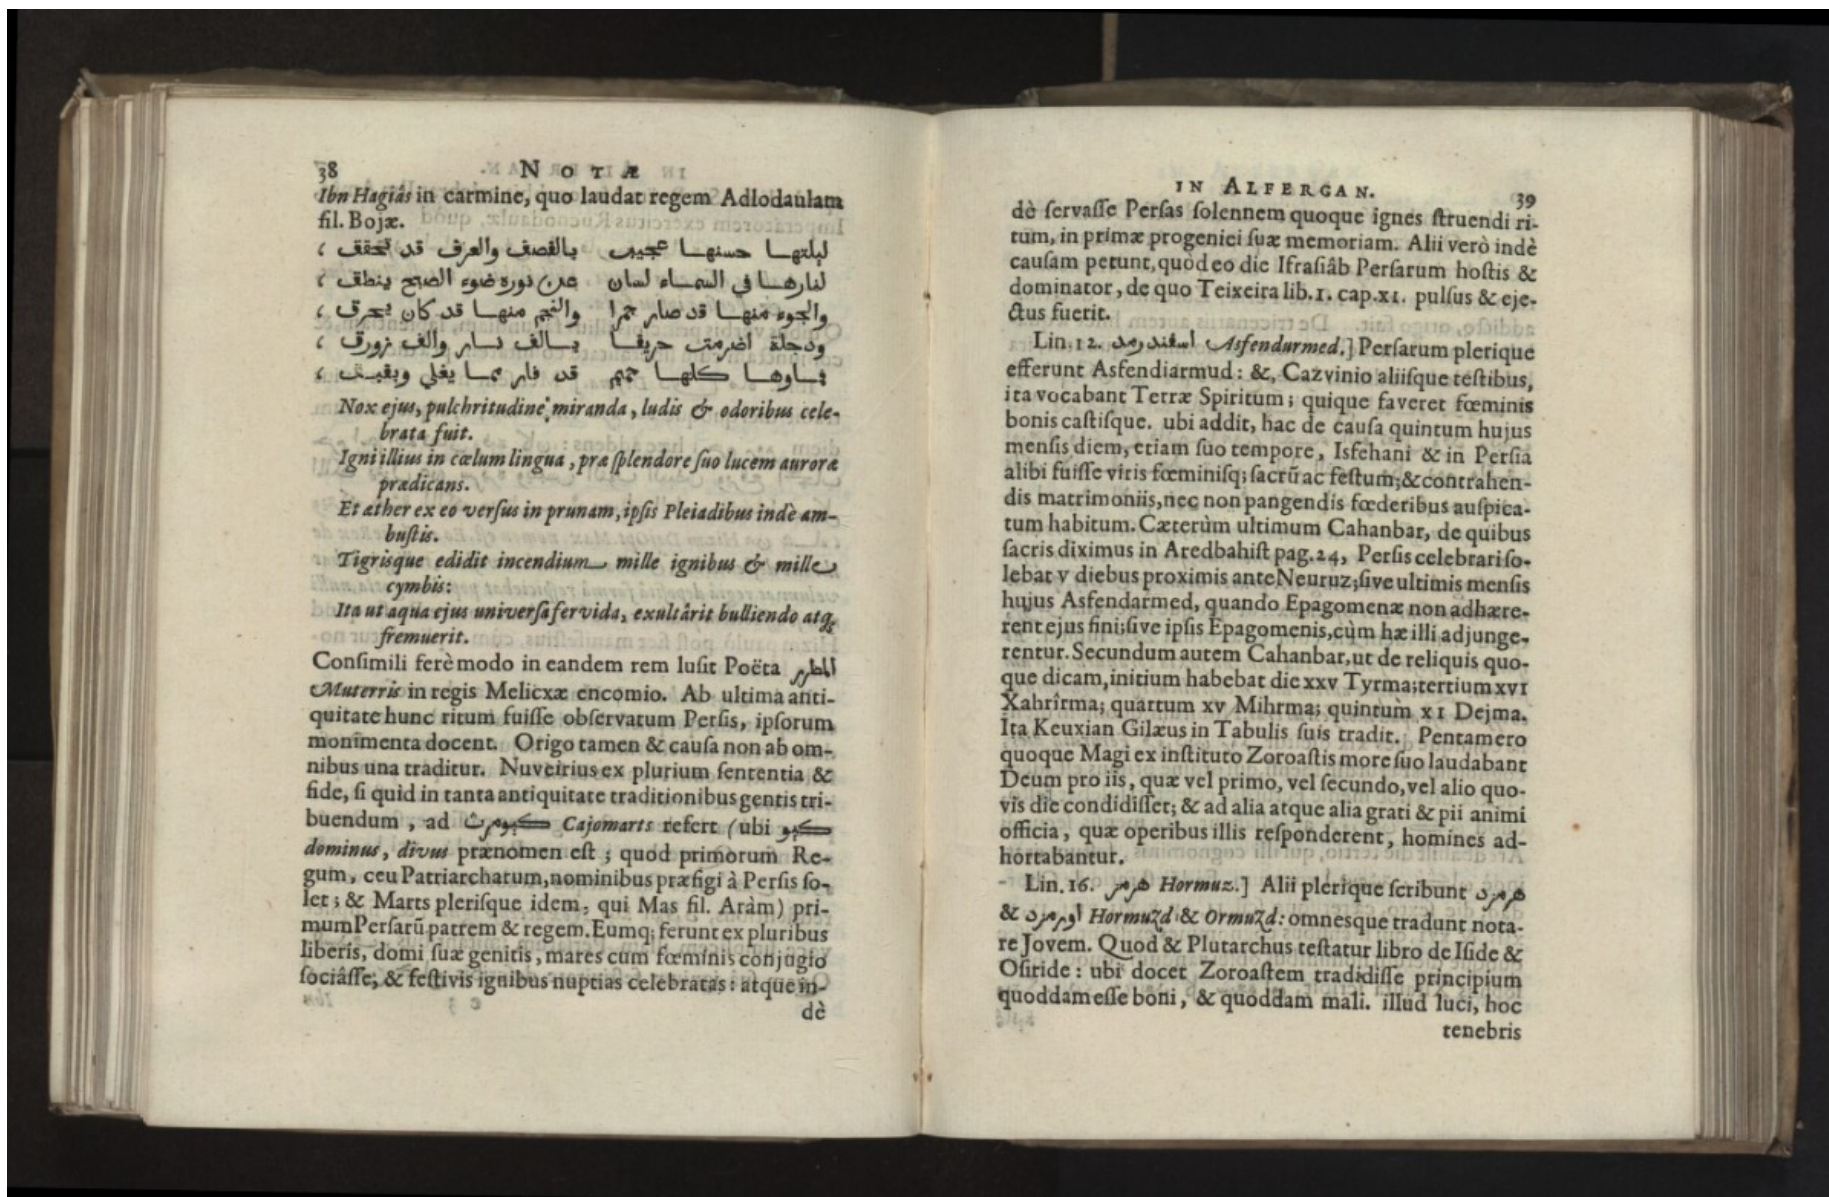 38 NOTÆ
Ibn Hagiâs in carmine, quo laudat regem Adlodaulam
fil. Bojæ.
ليلتهـا حسنهـا عجيب بالقصف والعرف قد تحقق ؛
لنارهـا في السمـاء لسان عن نوره ضوء الصبح ينطق ؛
والجوء منهـا قد صار جمرا والنجم منهـا قد كان يحرق ؛
ودجلة اضرمت حريقـا بـالف نـار والف زورق ؛
فمـاوهـا كلهـا حميم قد فار ممـا يغلي وبقبق ؛
Nox ejus, pulchritudine miranda, ludis & odoribus cele-
brata fuit.
Igni illius in cœlum lingua, præ splendore suo lucem auroræ
prædicans.
Et æther ex eo versus in prunam, ipsis Pleiadibus indè am-
bustis.
Tigrisque edidit incendium mille ignibus & mille
cymbis:
Ita ut aqua ejus universa fervida, exultârit bulliendo atq;
fremuerit.
Consimili ferè modo in eandem rem lusit Poëta المطرز
Muterris in regis Melicxæ encomio. Ab ultima anti-
quitate hunc ritum fuisse observatum Persis, ipsorum
monimenta docent. Origo tamen & causa non ab om-
nibus una traditur. Nuveirius ex plurium sententia &
fide, si quid in tanta antiquitate traditionibus gentis tri-
buendum, ad كيومرث Cajomarts refert (ubi كيو
dominus, divus prænomen est; quod primorum Re-
gum, ceu Patriarcharum, nominibus præfigi à Persis so-
let; & Marts plerisque idem, qui Mas fil. Aràm) pri-
mum Persarũ patrem & regem. Eumq; ferunt ex pluribus
liberis, domi suæ genitis, mares cum fœminis conjugio
sociâsse; & festivis ignibus nuptias celebratas: atque in-
dè
IN ALFERGAN. 39
dè servasse Persas solennem quoque ignes struendi ri-
tum, in primæ progeniei suæ memoriam. Alii verò indè
causam petunt, quòd eo die Ifrasiâb Persarum hostis &
dominator, de quo Teixeira lib. I. cap. XI. pulsus & eje-
ctus fuerit.
Lin. 12. اسفندرمد Asfendurmed.] Persarum plerique
efferunt Asfendiarmud: &, Cazvinio aliisque testibus,
ita vocabant Terræ Spiritum; quique faveret fœminis
bonis castisque. ubi addit, hac de causa quintum hujus
mensis diem, etiam suo tempore, Isfehani & in Persia
alibi fuisse viris fœminisq; sacrũ ac festum; & contrahen-
dis matrimoniis, nec non pangendis fœderibus auspica-
tum habitum. Cæterùm ultimum Cahanbar, de quibus
sacris diximus in Aredbahist pag. 24, Persis celebrari so-
lebat V diebus proximis ante Neuruz; sive ultimis mensis
hujus Asfendarmed, quando Epagomenæ non adhære-
rent ejus fini; sive ipsis Epagomenis, cùm hæ illi adjunge-
rentur. Secundum autem Cahanbar, ut de reliquis quo-
que dicam, initium habebat die XXV Tyrma; tertium XVI
Xahrîrma; quartum XV Mihrma; quintum XI Dejma.
Ita Keuxian Gilæus in Tabulis suis tradit. Pentamero
quoque Magi ex instituto Zoroastis more suo laudabant
Deum pro iis, quæ vel primo, vel secundo, vel alio quo-
vis die condidisset; & ad alia atque alia grati & pii animi
officia, quæ operibus illis responderent, homines ad-
hortabantur.
Lin. 16. هرمز Hormuz.] Alii plerique scribunt هرمزد
& اورمزد Hormuzd & Ormuzd: omnesque tradunt nota-
re Jovem. Quod & Plutarchus testatur libro de Iside &
Osiride: ubi docet Zoroastem tradidisse principium
quoddam esse boni, & quoddam mali. illud luci, hoc
tenebris